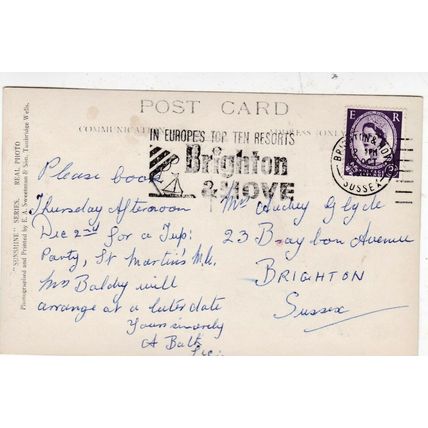 POST CARD
COMMUNICATION
ADDRESS ONLY
IN EUROPE'S TOP TEN RESORTS
Brighton
& HOVE
E R
BRIGHTON & HOVE
PM
OCT
SUSSEX
"SUNSHINE" SERIES. REAL PHOTO
Photographed and Printed by E. A. Sweetman & Son, Tunbridge Wells.
Please book
Thursday Afternoon
Dec 2nd for a
Party, St Martin's
Mrs Baldry will
arrange at a later date
Yours sincerely
A
Mr Audrey Glyde
23 Avenue
BRIGHTON
Sussex